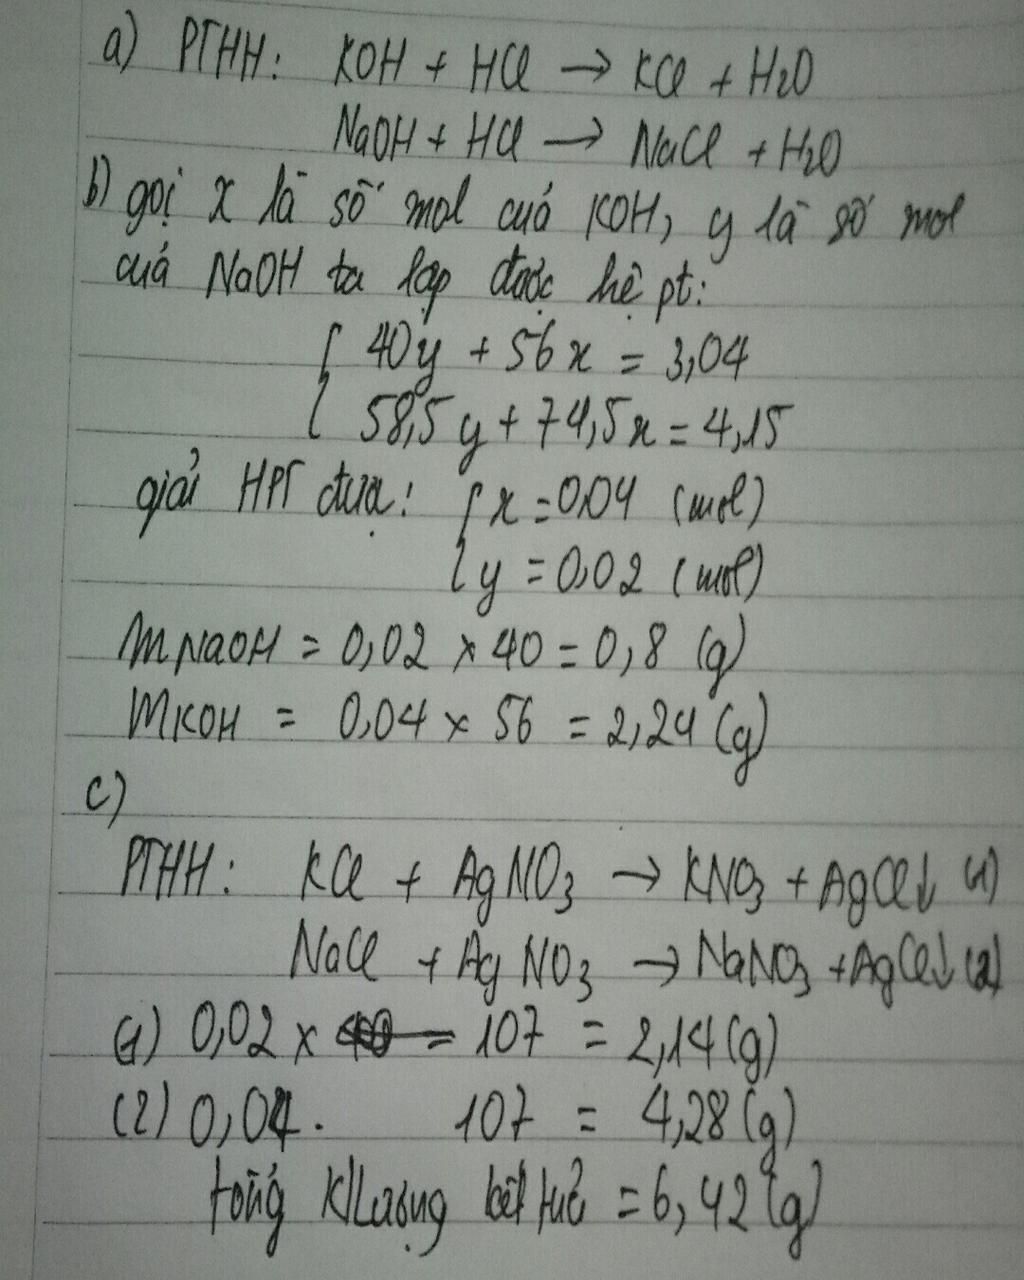 a) PTHH: KOH + HCl → KCl + H2O
NaOH + HCl → NaCl + H2O
b) gọi x là số mol cuả KOH, y là số mol
cuả NaOH ta lập được hệ pt:
{ 40y + 56x = 3,04
58,5y + 74,5x = 4,15
giải HPT được: { x = 0,04 (mol)
y = 0,02 (mol)
mNaOH = 0,02 x 40 = 0,8 (g)
mKOH = 0,04 x 56 = 2,24 (g)
c)
PTHH: KCl + AgNO3 → KNO3 + AgCl↓ (1)
NaCl + AgNO3 → NaNO3 + AgCl↓ (2)
(1) 0,02 x 107 = 2,14 (g)
(2) 0,04 . 107 = 4,28 (g)
tổng K/Lượng kết tuả = 6,42 (g)